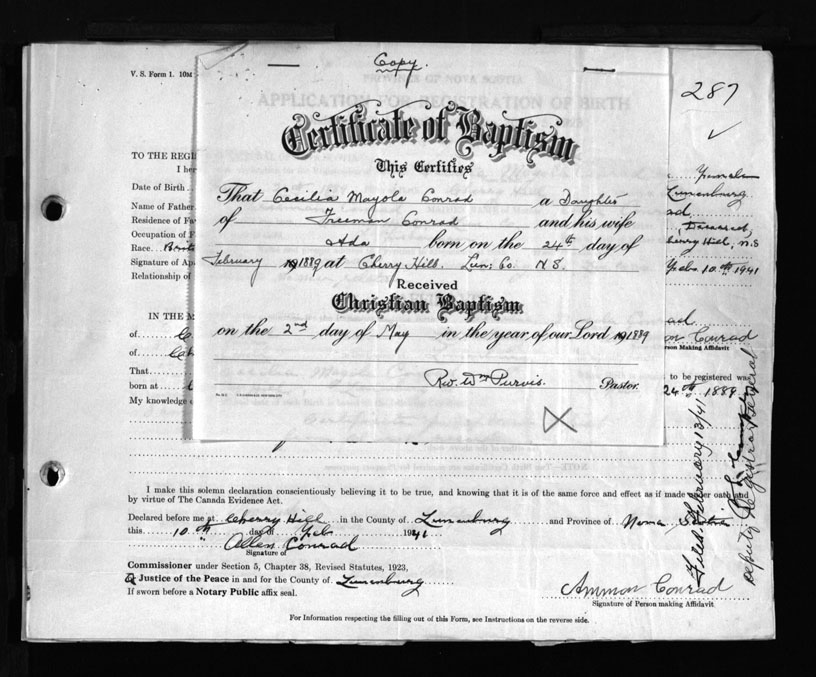 Copy.
V. S. Form 1. 10M
PROVINCE OF NOVA SCOTIA
APPLICATION FOR REGISTRATION OF BIRTH
287
Certificate of Baptism
This Certifies
That Cecilia Mayola Conrad a Daughter
of Freeman Conrad and his wife
Ada born on the 24th day of
February 1889 at Cherry Hill. Lun: Co. N S.
Received
Christian Baptism
on the 2nd day of May in the year of our Lord 1889
Rev. Wm Purvis. Pastor.
TO THE REGI
I her
Female
Date of Birth
Lunenburg
Name of Father
Residence of Fa
Deceased,
Occupation of F
Cherry Hill, N.S
Race.
Signature of Ap
Feb. 10th 1941
Relationship of
IN THE M
of
Conrad
Person Making Affidavit
of
That
to be registered was
born at
24th 1889
My knowledge
I make this solemn declaration conscientiously believing it to be true, and knowing that it is of the same force and effect as if made under oath and
by virtue of The Canada Evidence Act.
Declared before me at Cherry Hill in the County of Lunenburg and Province of Nova Scotia
this 10th day of Feb 1941
Allen Conrad
Signature of
Commissioner under Section 5, Chapter 38, Revised Statutes, 1923,
Justice of the Peace in and for the County of Lunenburg
If sworn before a Notary Public affix seal.
Ammon Conrad
Signature of Person making Affidavit
For Information respecting the filling out of this Form, see Instructions on the reverse side.
Filed February 13/41
Deputy Registrar General